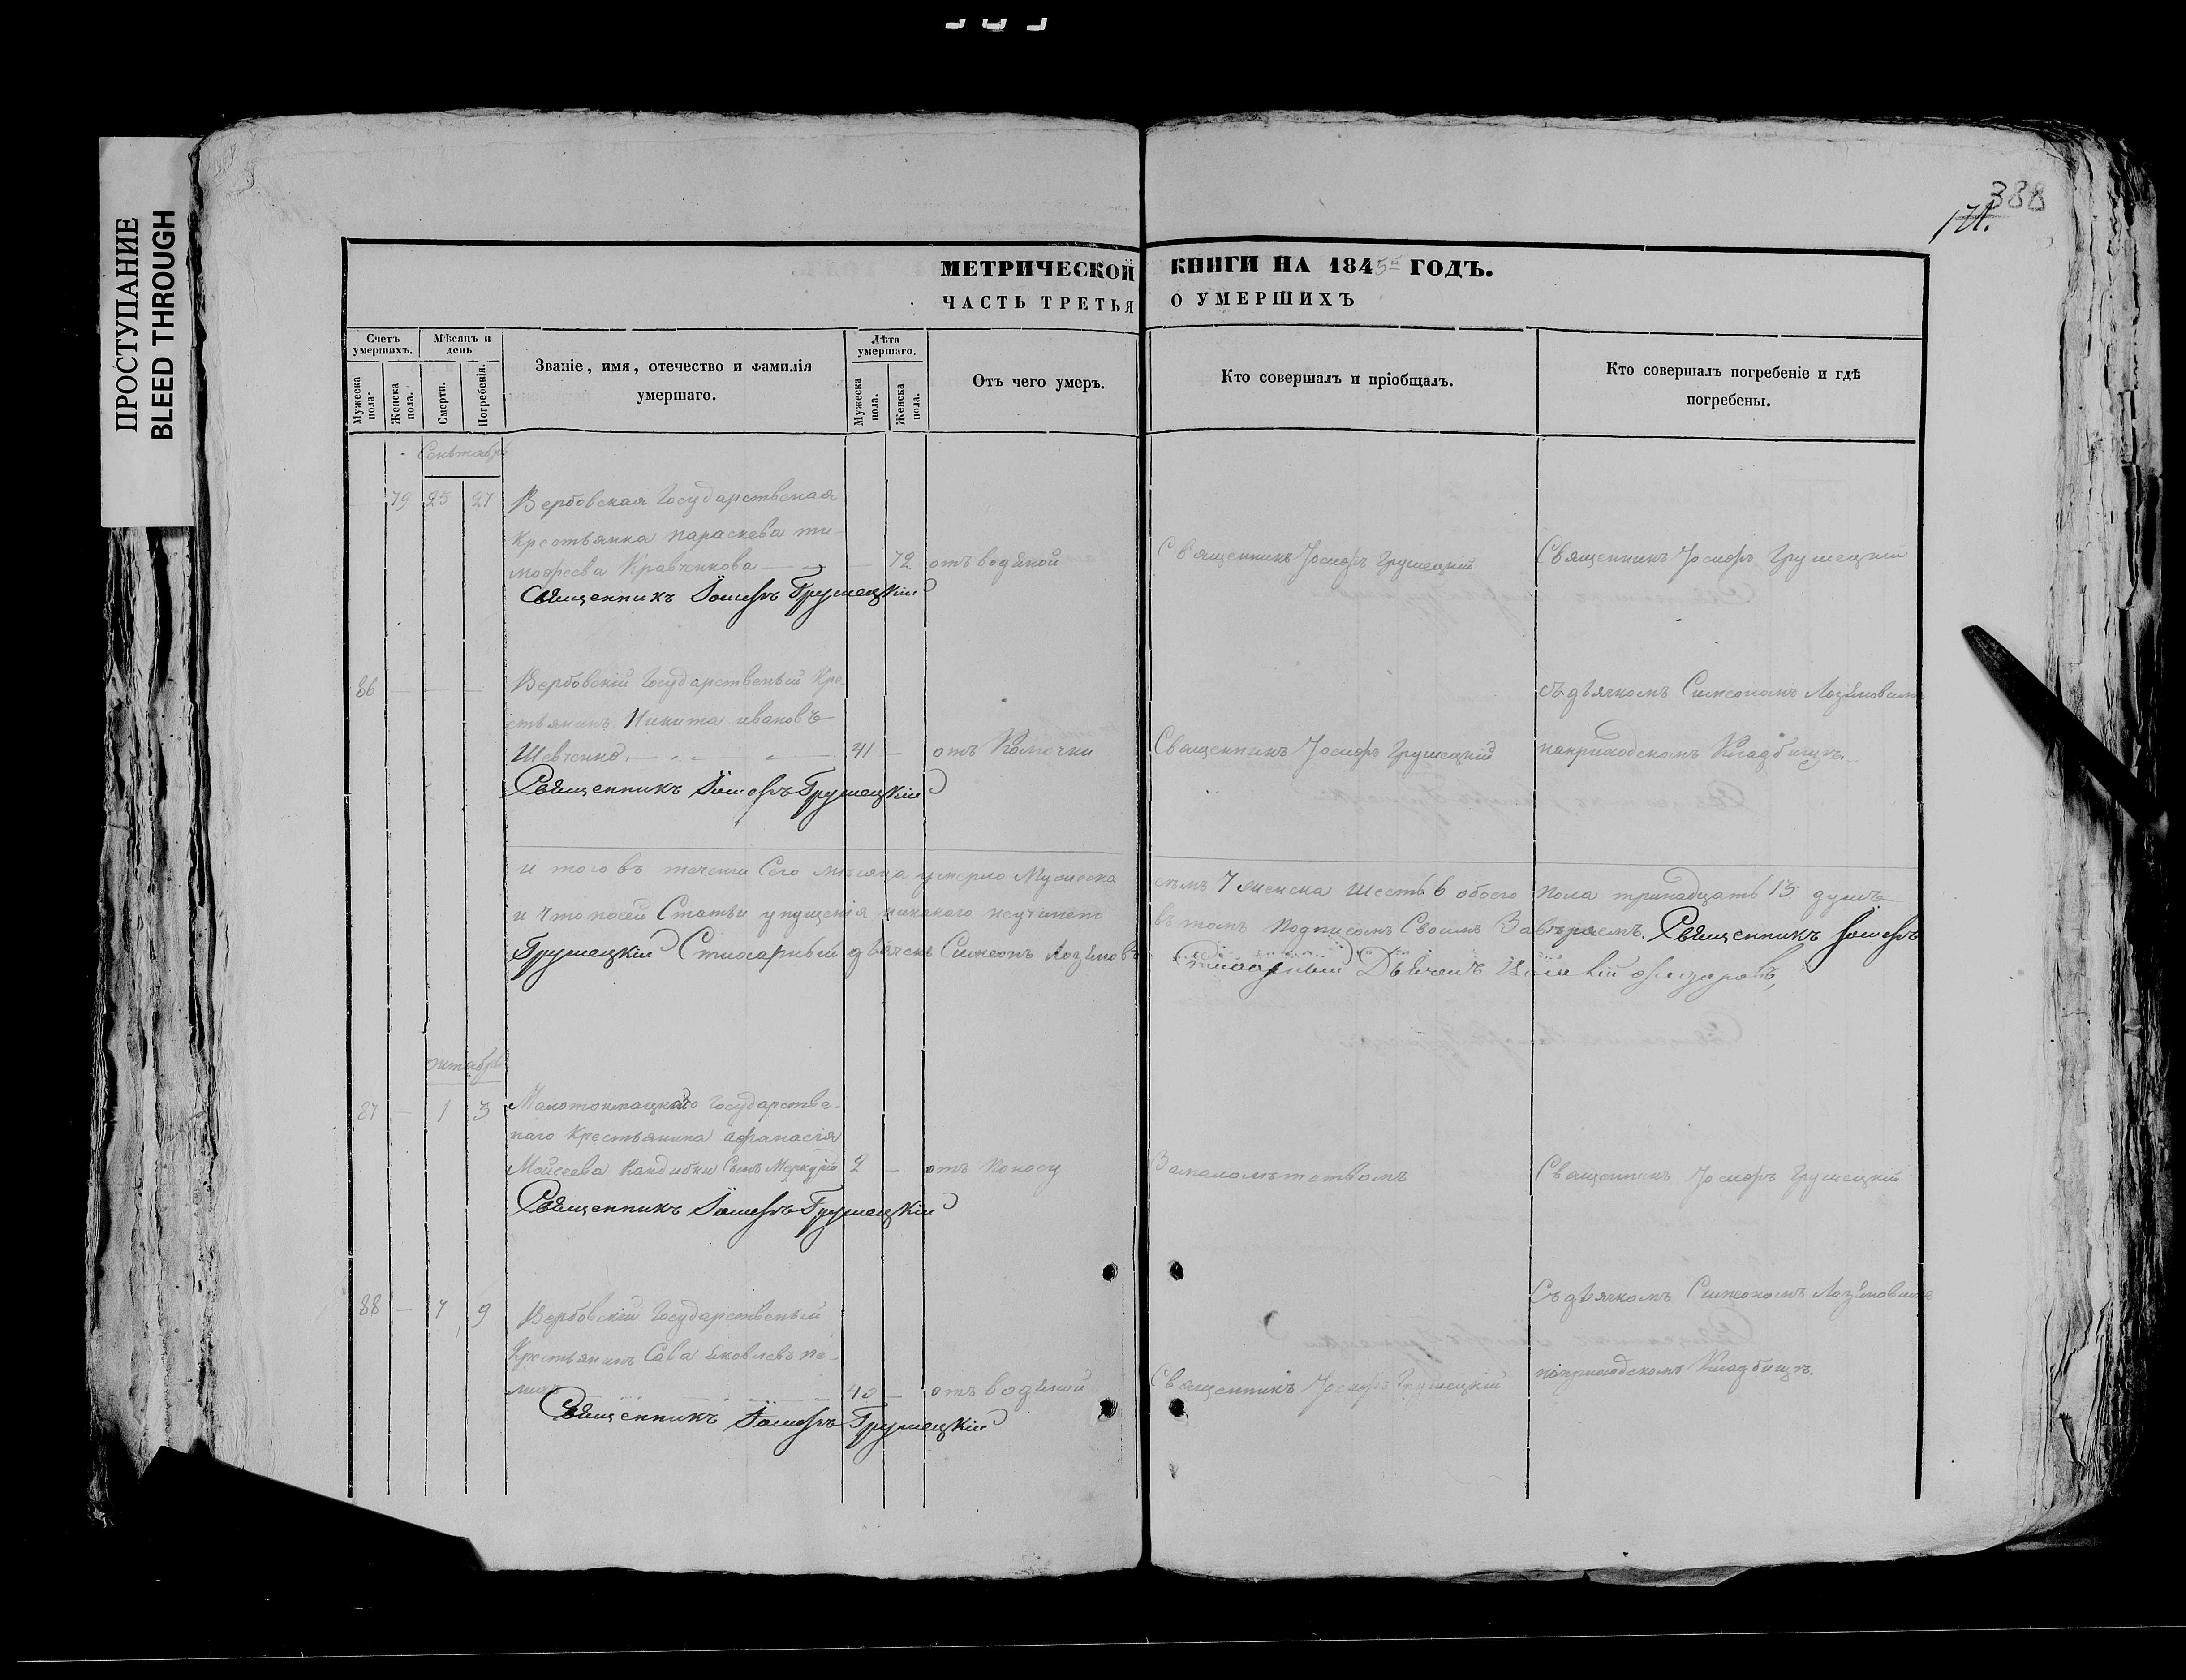 ПРОСТУПАНИЕ
BLEED THROUGH
388
171.
МЕТРИЧЕСКОЙ КНИГИ НА 1845й ГОДЪ.
ЧАСТЬ ТРЕТЬЯ О УМЕРШИХЪ
Счетъ умершихъ.
Мѣсяцъ и день
Званіе, имя, отечество и фамилія умершаго.
Лѣта умершаго.
Отъ чего умеръ.
Кто совершалъ и пріобщалъ.
Кто совершалъ погребеніе и гдѣ погребены.
Мужеска пола.
Женска пола.
Смерти.
Погребенія.
Мужеска пола.
Женска пола.
Сентябрь
79 25 27 Вербовская Государственая
Крестьянка параскева ти
мофеева Кравченкова 72 отъ водяной Священникъ Іосифъ Грушецкій Священникъ Іосифъ Грушецкій
Священникъ Іосифъ Грушецкій
86 Вербовскій Государственый Кре
съ дьячкомъ Симеономъ Лозяновымъ
стьянинъ Никита ивановъ
Шевченко 41 отъ Священникъ Іосифъ Грушецкій наприходскомъ Кладбищѣ
Священникъ Іосифъ Грушецкій
и того въ теченіи Сего мѣсяца умерло Мужеска 7 женска шесть 6 обоего пола тринадцать 13 душъ
и что посей Статьи упущенія никакого неучинено въ томъ подписомъ Своимъ Завѣряемъ. Священникъ Іосифъ
Грушецкій Стихарный дьячекъ Симеонъ Лозяновъ
Стихарный Дьячекъ
октябрь
87 1 3 Малотокмацкаго Государстве-
наго Крестьянина афанасія
Моисеева Кандибки Сынъ Меркурій 2 отъ поносу Замалолѣтствомъ Священникъ Іосифъ Грушецкій
Священникъ Іосифъ Грушецкій
Съ дьячкомъ Симеономъ Лозяновымъ
88 7 9 Вербовскій Государственый
Крестьянинъ Сава яковлевъ
наприходскомъ Кладбищѣ.
40 отъ водяной Священникъ Іосифъ Грушецкій
Священникъ Іосифъ Грушецкій